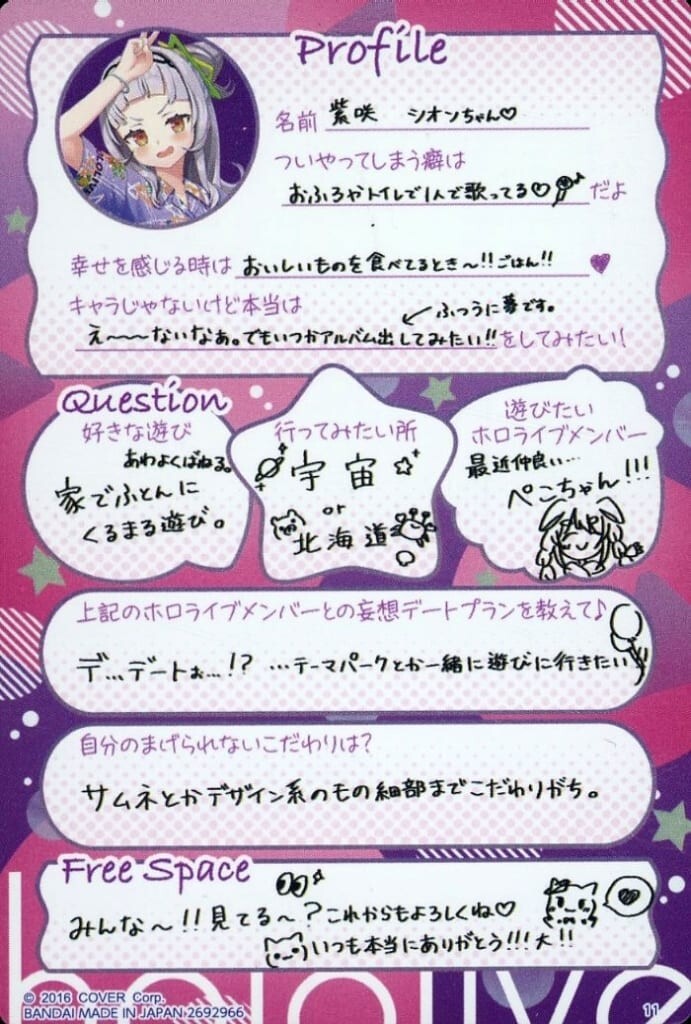 Profile
名前 紫咲 シオンちゃん♡
ついやってしまう癖は
おふろやトイレで1人で歌ってる♡ だよ
幸せを感じる時は おいしいものを食べてるとき〜!!ごはん!!
キャラじゃないけど本当は
ふつうに夢です。
え〜〜ないなぁ。でもいつかアルバム出してみたい!! をしてみたい!
Question
好きな遊び
あわよくばねる。
家でふとんに
くるまる遊び。
行ってみたい所
宇宙
or
北海道
遊びたい
ホロライブメンバー
最近仲良い…
ぺこちゃん!!!
上記のホロライブメンバーとの妄想デートプランを教えて♪
デ…デートぉ…!? …テーマパークとか一緒に遊びに行きたい
自分のまげられないこだわりは?
サムネとかデザイン系のもの細部までこだわりがち。
Free Space
みんな〜!!見てる〜?これからもよろしくね♡
いつも本当にありがとう!!!大!!
hololive
© 2016 COVER Corp.
BANDAI MADE IN JAPAN 2692966
11